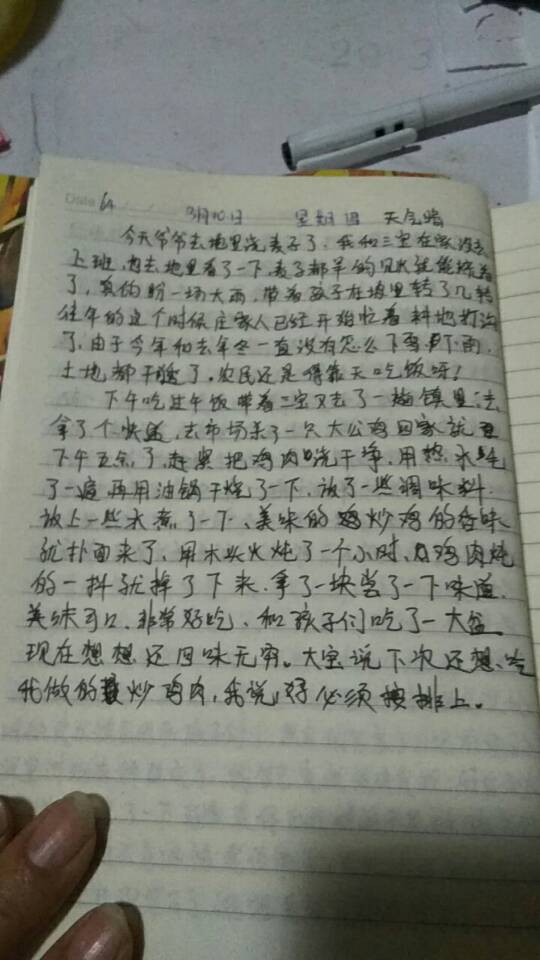 Date 64
3月10日 星期四 天气晴
今天爷爷去地里浇麦子了，我和三宝在家没去
上班，也去地里看了一下，麦子都旱的
了，真的盼一场大雨，带着孩子在坡里转了几转
往年的这个时候庄家人已经开始忙着耕地打沟
了，由于今年和去年冬一直没有怎么下雪下雨，
土地都干了，农民还是得靠天吃饭呀！
下午吃过午饭带着三宝又去了一趟镇里，去
拿了个快递，去市场杀了一只大公鸡回家就
下午五点了，赶紧把鸡肉洗干净，用热水
了一遍再用油锅干烧了一下，放了一些调味料，
放上一些水煮了一下，美味的炒鸡的香味
就扑面来了，用木头火炖了一个小时，鸡肉炖
的一抖就掉了下来，拿了一块尝了一下味道，
美味可口，非常好吃，和孩子们吃了一大盆
现在想想还回味无穷。大宝说下次还想吃
我做的炒鸡肉，我说，好必须按排上。